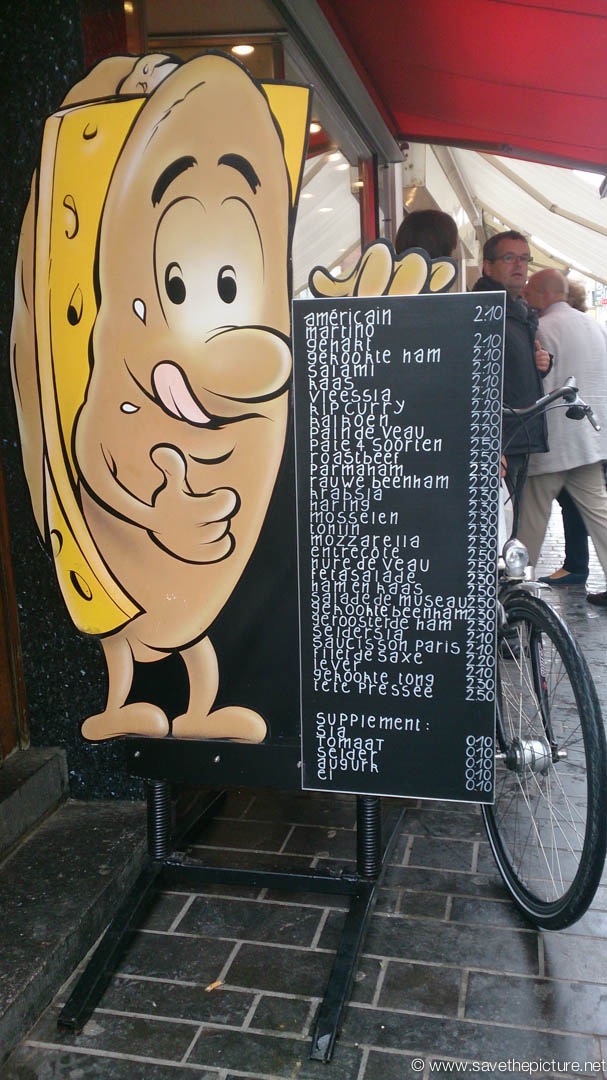 américain 2.10
martino
gehakt 2.10
gekookte ham 2.10
salami 2.10
kaas 2.10
vleessla 2.10
kip curry 2.20
kalkoen 2.20
pain de veau 2.20
paté 4 soorten 2.50
roastbeef 2.50
parmaham 2.30
rauwe beenham 2.20
krabsla 2.30
haring 2.30
mosselen 2.50
tonijn 2.30
mozzarella 2.30
entrecote 2.50
hure de veau 2.50
fetasalade 2.30
ham en kaas 2.50
salade de museau 2.50
gekookte beenham 2.50
geroosterde ham 2.30
seldersla 2.10
saucisson paris 2.10
filet de saxe 2.20
lever 2.10
gekookte tong 2.30
tete pressée 2.50
supplement:
sla
tomaat 0.10
selder 0.10
augurk 0.10
ei 0.10
0.10
© www.savethepicture.net